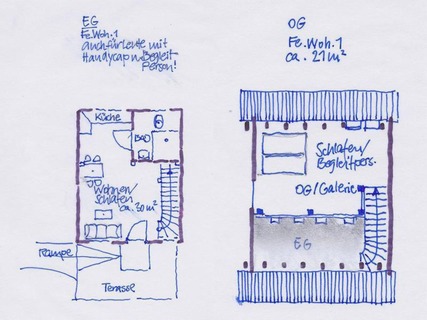 EG
Fe.Woh.1
auch für Leute mit
Handycap u. Begleit
Person!
OG
Fe.Woh.1
ca. 21 m²
Küche
BAD
Wohnen/
schlafen
ca. 30 m²
Rampe
Terrasse
Schlafen/
Begleitpers.
OG/Galerie
EG